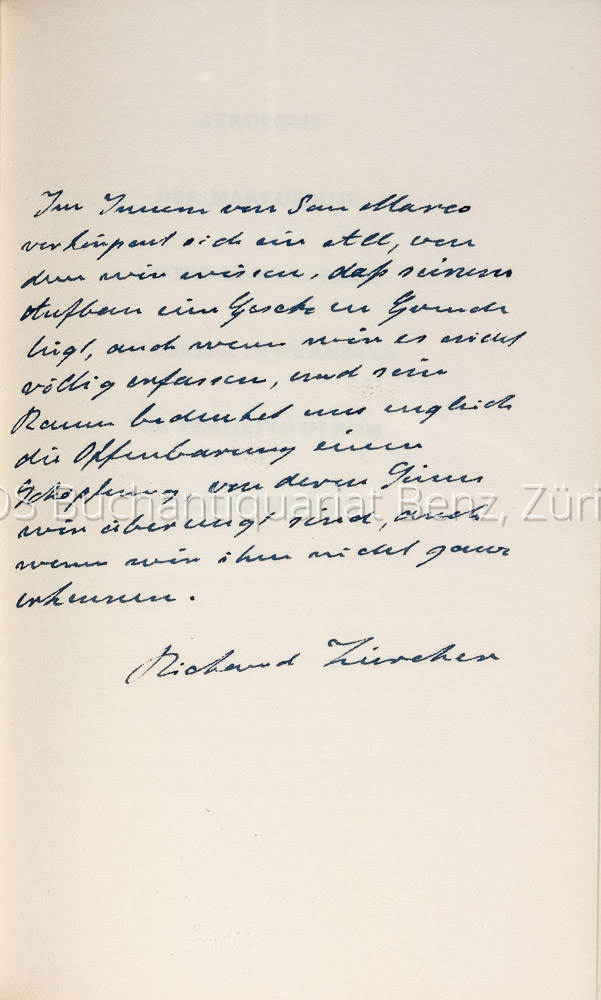 Im Innern von San Marco
verkörpert sich ein All, von
dem wir wissen, daß seinem
Aufbau ein Gesetz zu Grunde
liegt, auch wenn wir es nicht
völlig erfassen, und sein
Raum bedeutet uns zugleich
die Offenbarung einer
Schöpfung, von deren Sinn
os Buchantiquariat Benz, Züri
wir überzeugt sind, auch
wenn wir ihn nicht ganz
erkennen.
Richard Zürcher